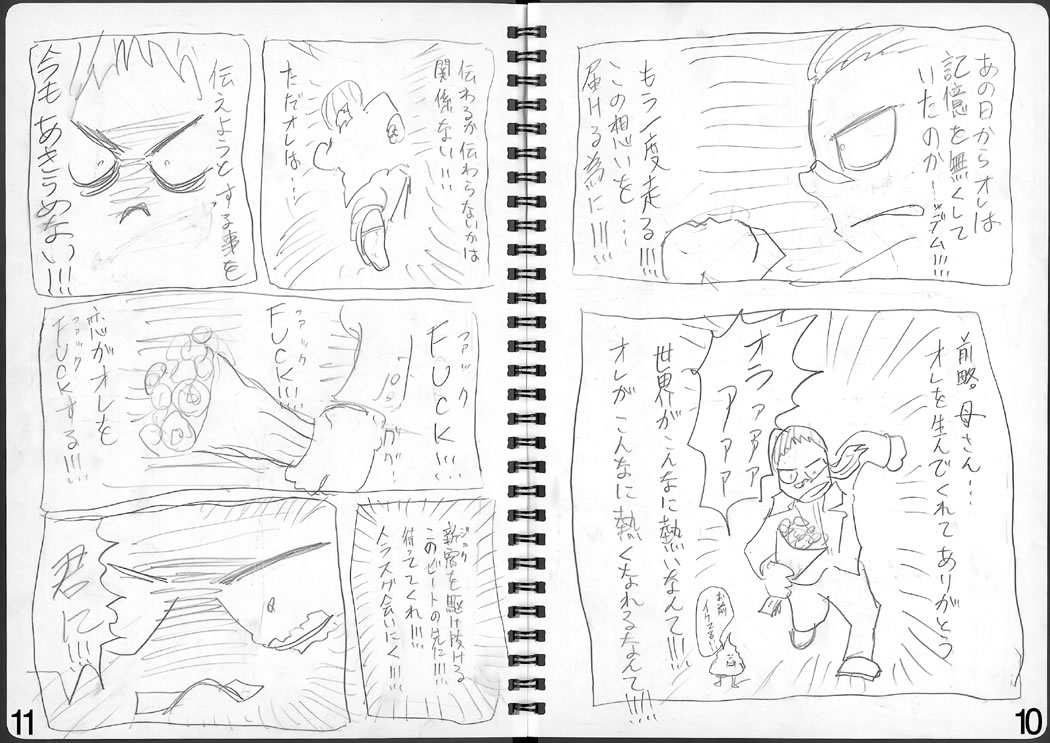 あの日からオレは
記憶を無くして
いたのか…ッデム!!!
もう一度走る!!!
この想いを…
届ける為に!!!
前略 母さん…
オレを生んでくれてありがとう
オラァァァァ
アアア
世界がこんなに熱いなんて!!!
オレがこんなに熱くなれるなんて!!!!
お前
イケてるぜ
10
伝わるか伝わらないかは
関係ない!!!
ただオレは…
伝えようとする事を
今もあきらめない!!!
ファック
FUCK!!!
ググ!
ファック
FUCK!!!
恋がオレを
ファック
FUCKする!!!
ジュク
新宿を駆け抜ける
このビートの先に!!!
待っててくれ!!!
今スグ会いにく!!!
君に!!!
11